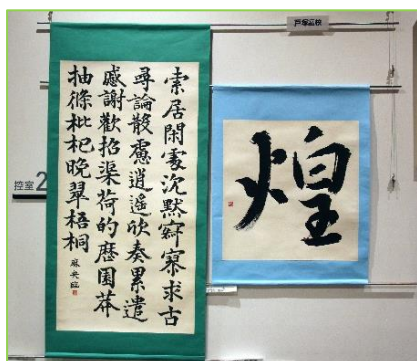 戸塚高校
索居閑處沈默寂寥求古
尋論散慮逍遙欣奏累遣
慼謝歡招渠荷的歷園莽
抽條枇杷晚翠梧桐
臨
煌
控室2